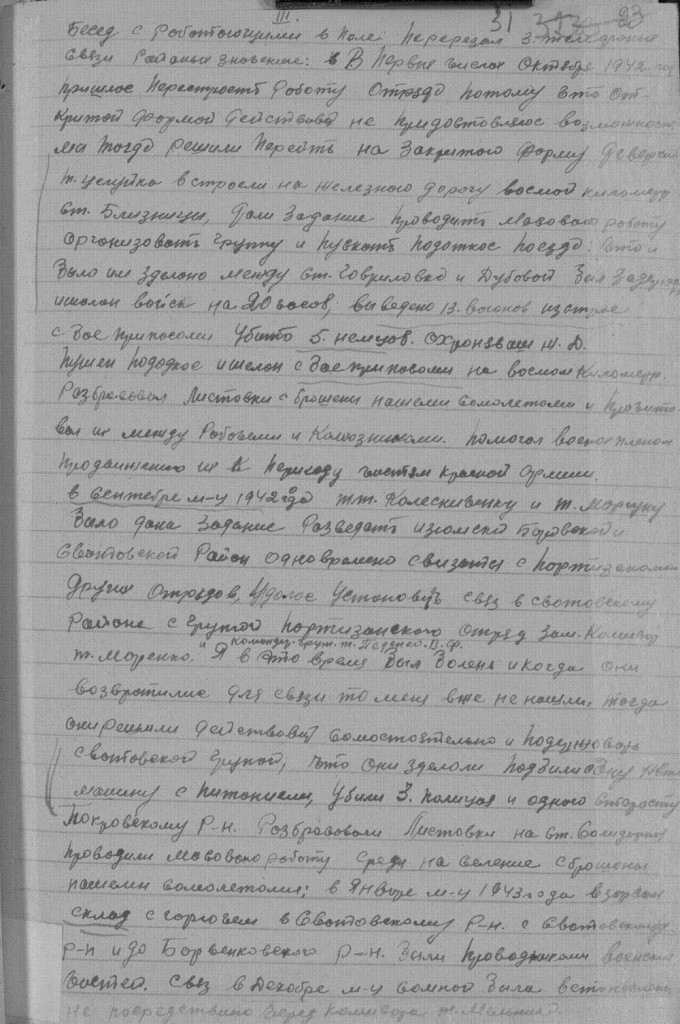 III.
31 23
бесед с Работоющими в поле. Перерезал 3. телефонные
связи Районых значение: в В Первых числах Октября 1942 год
пришлос Перестроеть Роботу Отряда потому што от-
критой Формой Действоват не придоставлялос возможност
ми тогда решили Перейть на Закритого Форму
на железного дорогу восмой километр
ст. Близнецы, дали Задание Проводить Мосовою роботу
Организовать Групу и Пускать Подоткос Поезда. што и
Было им Зделано между ст. Гавриловкой и Дубовой Был Задерж
ишалон войск на 20 часов, выведено 13. вогонов из строе
с Бое припосоми Убито 5. немцов. охронявши Ж.Д.
Пущен пододкос ишелон с Бое припосоми на восмом Километре.
Розбросовол Листовки сброшени нашими Сомолетоми и Прочито
вол их между Робочими и Колхозниками. помогол военопленом
продвижению их к Переходу чистям красной Армии.
в сентебре м-цу 1942 года тт. Колесниченку и т. Моргуну
Было дана Задание Розведать изюмский Боровской и
Сватовской Район одновремено связатся с портизаноми
Других Отрядов, Удалос Установить связ в сватовскому
Районе с Групой портизанского Отряд Зам. Командир
команди. груп. т. Педенко. В. Ф.
т. Моренко, и Я в это время Был Болен и когда они
возвротились для связи то меня вже не нашли, тогда
они решили действоват сомостоятельно и
сватовской Групой, што они зделоли подбили одну Авто
машину с питанием, Убили 3. полицая и одного старосту
Покровскому Р-н. Розбросовали Листовки на ст.
проводили Мосовою роботу среди на селение сброшени
нашеми сомолетоми; в Январе м-цу 1943 года взорвал
склад с горючем в Сватовскому р-н. с Сватовского
р-н и до Борвенковского р-н. Были проводниками военских
чостей. связ в Декобре м-цу сомной Была встоновлена
не посредствино Через